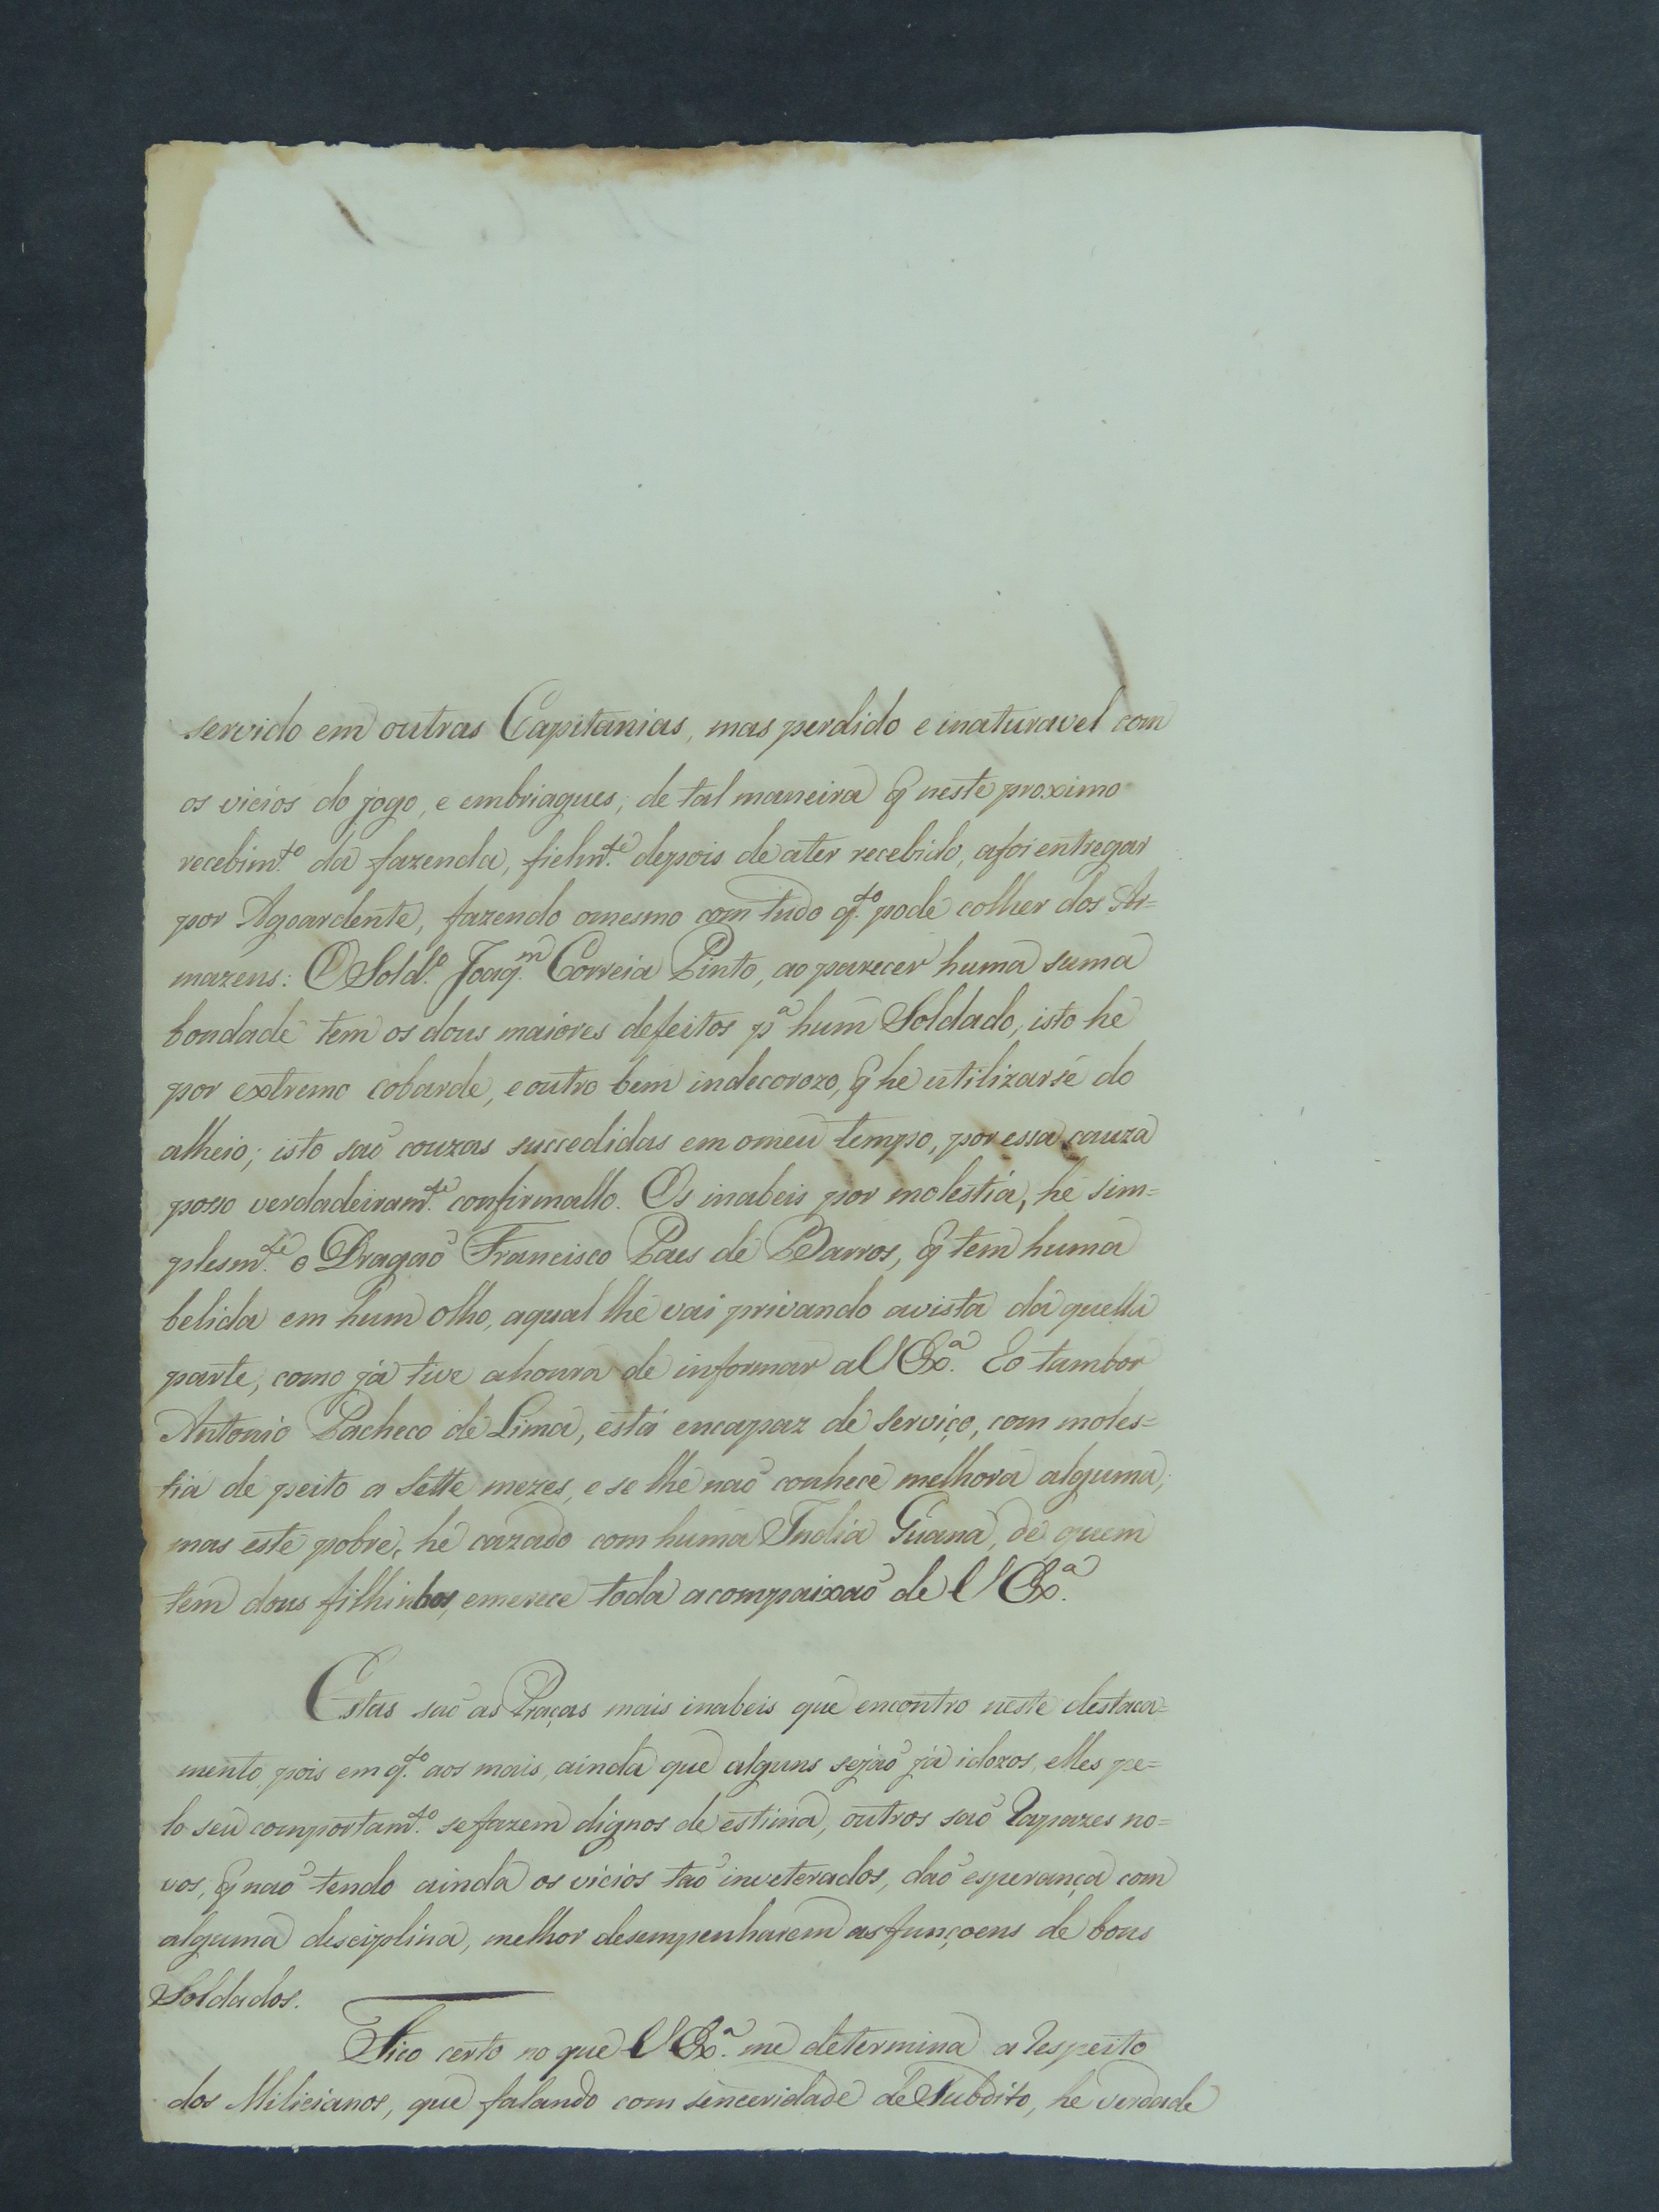 servido em outras Capitanias, mas perdido e inaturavel com
os vicios do jogo, e embriagues, de tal maneira q̃ neste proximo
recebim.to da fazenda, fielm.te depois de ater recebido, afoi entregar
por Agoardente, fazendo omesmo com tudo q.to pode colher dos Ar=
mazens: O Sold.o Joaq.m Correia Pinto, ao parecer huma suma
bondade tem os dous maiores defeitos p.a hum Soldado, isto he
por extremo cobarde, e outro bem indecorozo, q̃ he utilizarse do
alheio; isto saõ couzas succedidas em omeu tempo, por essa cauza
posso verdadeiram.te confirmallo. Os inabeis por molestia, he sim=
plesm.te o Dragaõ Francisco Paes de Barros, q̃ tem huma
belida em hum olho, aqual lhe vai privando avista da quella
parte, como já tive ahonra de informar a V Ex.a Eo tambor
Antonio Pacheco de Lima, está encapaz de serviço, com moles=
tia de peito a Sette mezes, e se lhe naõ conhece melhora alguma,
mas este pobre, he cazado com huma India Guana, de quem
tem dous filhinhos, emerece toda acompaixaõ de V Ex.a
Estas saõ as Praças mais inabeis que encontro neste destaca=
mento, pois em q.to aos mais, ainda que alguns sejaõ já idozos, elles pe=
lo seu comportam.to sefazem dignos de estima, outros saõ Rapazes no=
vos, q̃ naõ tendo ainda os vicios taõ inveterados, daõ esperança com
alguma disciplina, melhor desempenharem as funçoens de bons
Soldados.
Fico certo no que V Ex.a me determina a Respeito
dos Milicianos, que falando com sinceridade de Subdito, he verdade